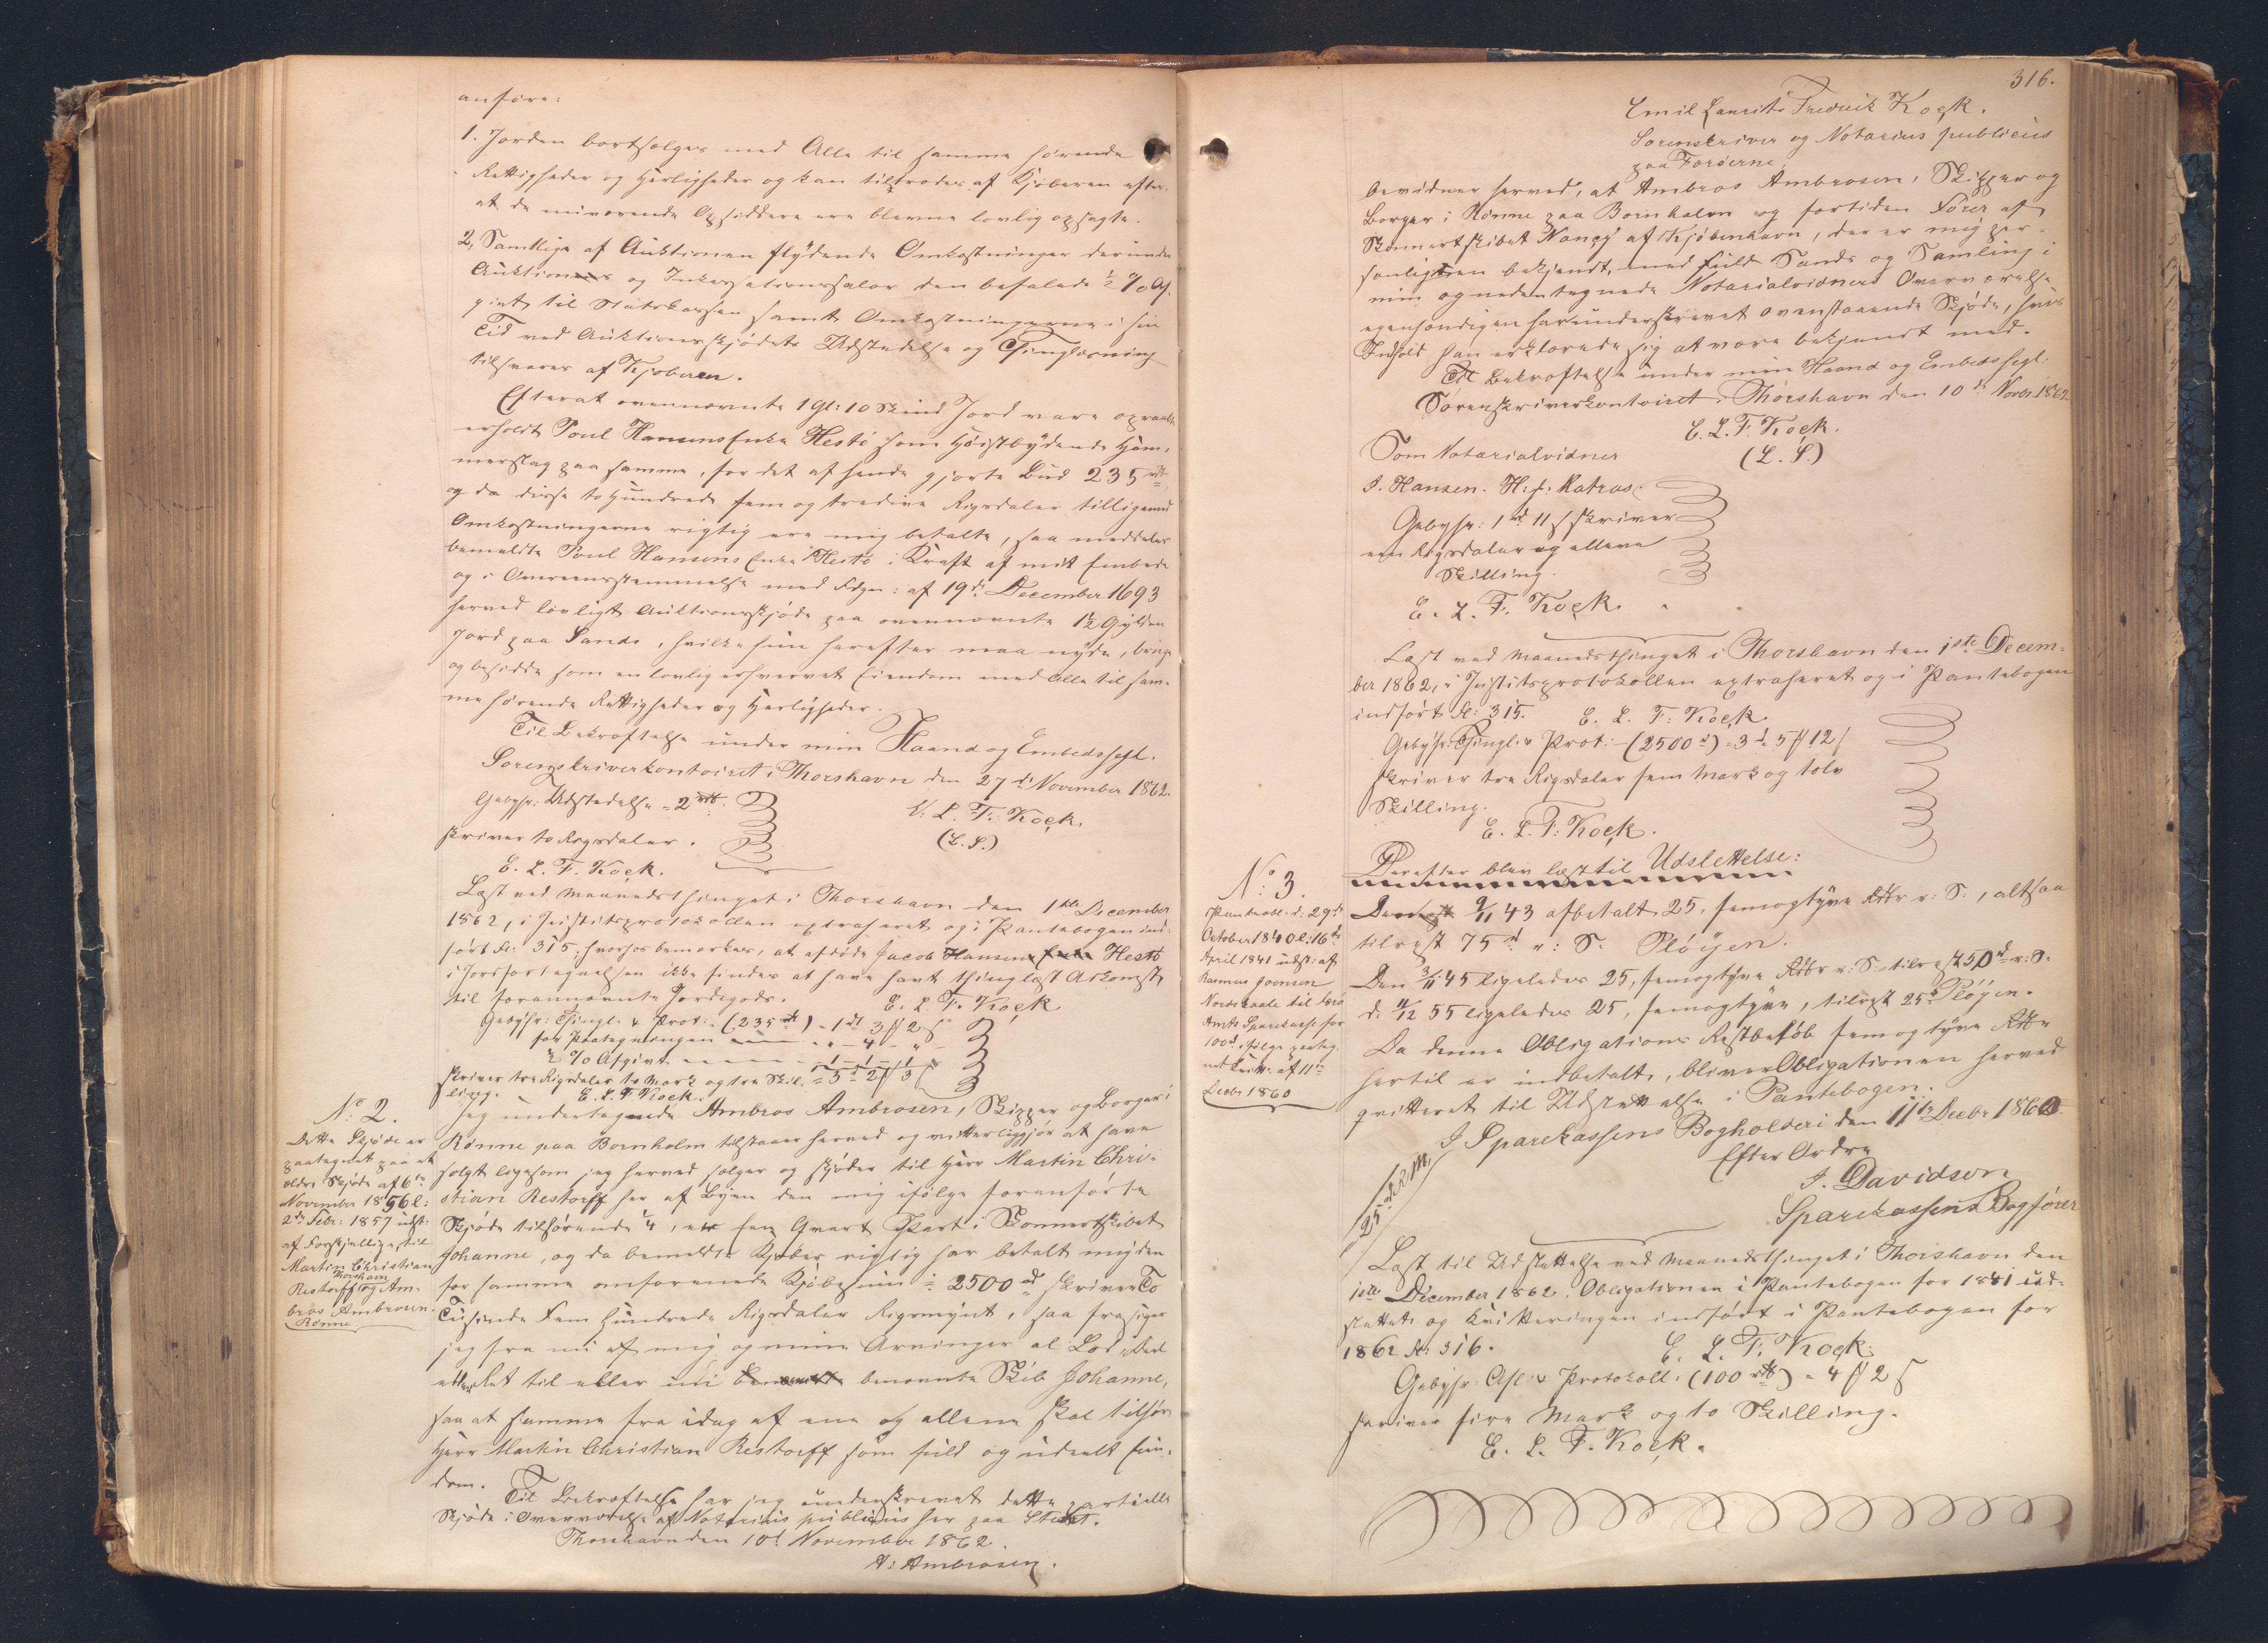 anføre:
1. Jorden bortsælges med Alle til samme hørende
Rettigheder og Herligheder og kan tiltrædes af Kjøberen efter,
at de nuværende Opsiddere ere blevne lovlig opsagte.
2, Samtlige af Auktionen flydende Omkostninger derunder
Auktions og Inkassationssalær den befalede ½ % Af-
givt til Statskassen samt Omkostningerne i sin
Tid ved Auktionsskjødets Udstedelse og Thinglæsning
tilsvares af Kjøberen.
Efterat ovennævnte 1 Gl: 10 Skind Jord vare opraabt
erholdt Poul Hansens Enke Hestø som Høistbydende Ham-
merslag paa samme, for det af hende gjorte Bud 235 rd
og da disse to Hundrede fem og tredive Rigsdaler tilligemed
Omkostningerne rigtig ere mig betalte, saa meddeles
bemeldte Poul Hansens Enke Hestø i Kraft af mit Embede
og i Overensstemmelse med Frdgn: af 19de December 1693
herved lovligt Auktionsskjøde paa ovennævnte 1½ Gylden
Jord paa Sandø, hvilke hun herefter maa nyde, bruge
og besidde som en lovlig erhvervet Eiendom med Alle til sam-
me hørende Rettigheder og Herligheder.
Til Bekræftelse under min Haand og Embedssegl.
Sorenskriverkontoiret i Thorshavn den 27de November 1862.
Gebyhr: Udstedelse = 2 rd.
E. L. F. Kock.
skriver to Rigsdaler.
(L. S.)
E. L. F. Kock.
Læst ved Maanedsthinget i Thorshavn den 1ste December
1862, i Justitsprotokollen extraheret og i Pantebogen ind-
ført fol: 315; hvorhos bemærkes, at afdøde Jacob Hansen Hestø
i Jordfortegnelsen ikke findes at have havt thinglæst Adkomst
til forannævnte Jordegods.
E. L. F. Kock
Gebyhr: Thingl. & Prot: (235 rd) - 1 rd 3 ℳ 2 ß
for Paategningen - " - 4 - " -
½ % Afgivt. - 1 - 1 - 1
skriver tre Rigsdaler to Mark og tre Skil- = 3 rd 2 ℳ 3 ß
ling.
E. L. F. Kock.
No 2.
Dette Skjøde er
paategnet paa et
ældre Skjøde af 6te
November 1856 l:
2den Febr: 1857 udst:
af Forskjellige, til
Martin Christian
Thorshavn
Restorff og Am-
bros Ambrosen
Rønne
Jeg undertegnede Ambros Ambrosen, Skipper og Borger i
Rønne paa Bornholm tilstaaer herved og vitterliggjør at have
solgt ligesom jeg herved sælger og skjøder til Herr Martin Chri-
stian Restorff her af Byen den mig ifølge foranførte
Skjøde tilhørende ¼, een Qvart Part i Skonnertskibet
Johanne, og da bemeldte Kjøber rigtig har betalt mig den
for samme omforenede Kjøbesum = 2500 rd skriver To
Tusinde Fem Hundrede Rigsdaler Rigsmynt, saa frasiger
jeg fra nu af mig og mine Arvinger al Lod, Deel
eller Ret til eller udi benævnte Skib Johanne,
saa at samme fra idag af ene og allene skal tilhøre
Herr Martin Christian Restorff som fuld og udeelt Eien-
dom.
Til Bekræftelse har jeg underskrevet dette partielle
Skjøde i Overværelse af Notarius publicus her paa Stedet.
Thorshavn den 10de November 1862.
A: Ambrosen.
316.
Emil Laurits Fredrik Kock.
Sorenskriver og Notarius publicus
paa Færøerne,
bevidner herved, at Ambros Ambrosen, Skipper og
Borger i Rønne paa Bornholm og fortiden Fører af
Skonnertskibet Nancy af Kjøbenhavn, der er mig per-
sonligen bekjendt, med fuld Sands og Samling i
min og nedentegnede Notarialvidners Overværelse
egenhændigen har underskrevet ovenstaaende Skjøde, hvis
Indhold han erklærede sig at være bekjendt med.
Til Bekræftelse under min Haand og Embedssegl.
Sorenskriverkontoiret i Thorshavn den 10de Novbr. 1862
E. L. F. Kock.
Som Notarialvidner
(L. S.)
J. Hansen. H: J: Matras.
Gebyhr: 1 rd 11 ß skriver
een Rigsdaler og elleve
Skilling.
E. L. F. Kock.
Læst ved Maanedsthinget i Thorshavn den 1ste Decem-
ber 1862, i Justitsprotokollen extraheret og i Pantebogen
indført fol: 315.
E. L. F. Kock.
Gebyhr: Thingl. & Prot: (2500 rd) = 3 rd 5 ℳ 12 ß
skriver tre Rigsdaler fem Mark og tolv
Skilling.
E. L. F. Kock.
Derefter blev læst til Udslettelse:
No: 3.
Panteobl: d: 29de
October 1840 l: 16de
April 1841 udst: af
Rasmus Joensen
Nordskaale til Færø
Amts Sparekasse for
100 rd ifølge paateg-
net Kvitt: af 11te
Decbr 1860
9/11 43 afbetalt 25, femogtyve Rdlr r: S:, altsaa
tilrest 75 rd r: S: Pløyen.
Den 3/11 45 ligeledes 25, femogtyve Rdlr r: S. tilrest 50 rd r: S.
d: 11/12 55 ligeledes 25, femogtyve, tilrest 25 rd Pløyen.
Da denne Obligations Restbeløb fem og tyve Rdlr
hertil er indbetalt, bliver Obligationen herved
qvitteret til Udslettelse i Pantebogen.
I Sparekassens Bogholderi den 11te Decbr 1860.
Efter Ordre
J. Davidsen
Sparekassens Bogfører
Læst til Udslettelse ved Maanedsthinget i Thorshavn den
1ste December 1862. Obligationen i Pantebogen for 1841 ud-
slettet og Kvitteringen indført i Pantebogen for
1862 fol: 316.
E. L. F. Kock.
Gebyhr: Afl: & Protokoll: (100 rd) = 4 ℳ 2 ß
skriver fire Mark og to Skilling.
E. L. F. Kock.